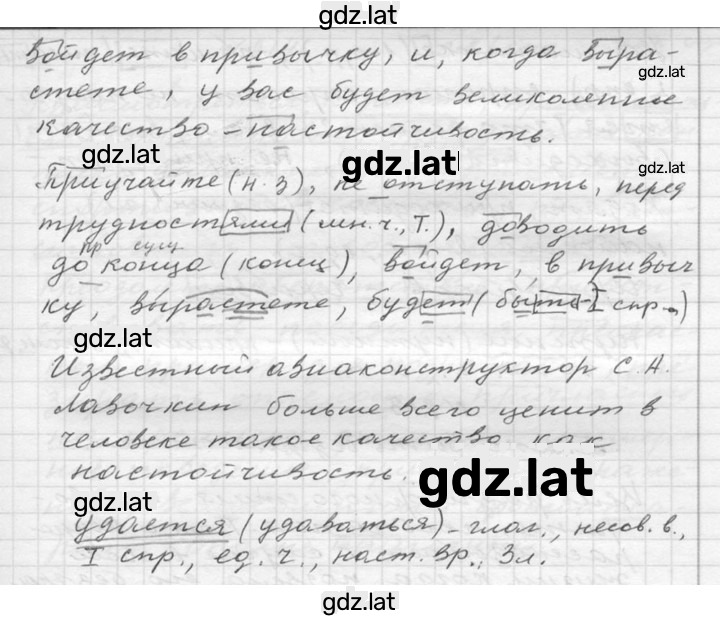 gdz.lat
войдет в привычку, и, когда выра-
gdz.lat
стете, у вас будет великолепное
качество – настойчивость.
gdz.lat
gdz.lat
gdz.lat
Приучайте (н. з), не отступать, перед
трудностями (мн. ч., Т.), доводить
пр сущ
до конца (конец), войдет, в привыч
ку, вырастете, будет (быть – I спр.)
gdz.lat
Известный авиаконструктор С. А.
Лавочкин больше всего ценит в
человеке такое качество как
настойчивость.
gdz.lat
gdz.lat
удается (удаваться) – глаг., несов. в.,
I спр., ед. ч., наст. вр., 3 л.
gdz.lat